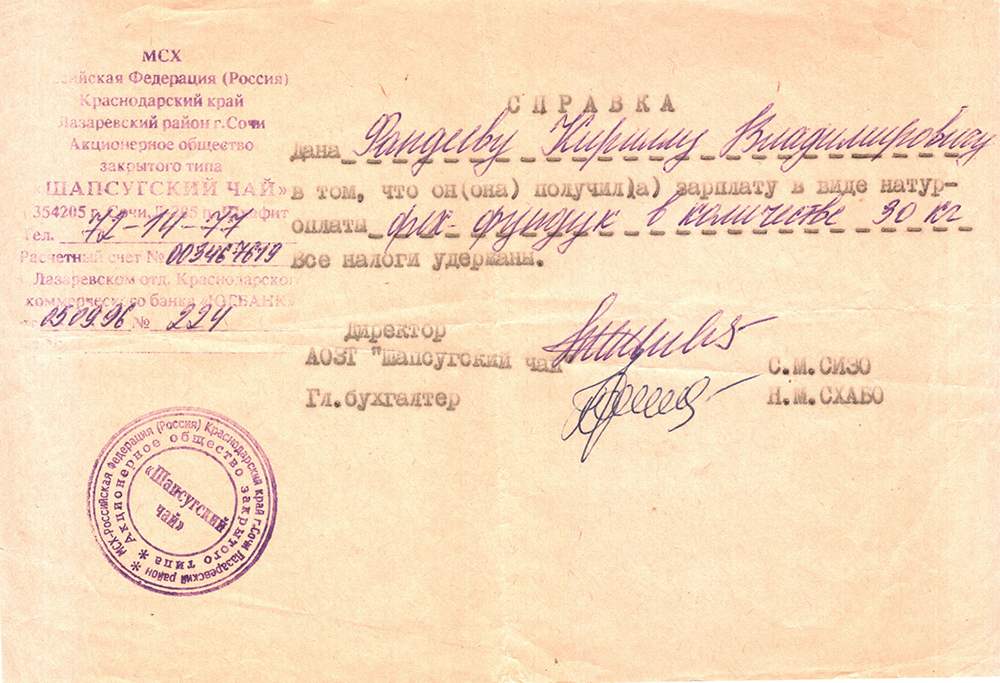 МСХ
Российская Федерация (Россия)
Краснодарский край
Лазаревский район г.Сочи
Акционерное общество
закрытого типа
«ШАПСУГСКИЙ ЧАЙ»
354205 г. Сочи,
тел. 72-14-77
Расчетный счет № 003467619
в Лазаревском отд. Краснодарского
коммерческого банка «ЮГБАНК»
050996 № 224
СПРАВКА
Дана Фандееву Кириллу Владимировичу
в том, что он(она) получил(а) зарплату в виде натур-
оплаты орех-фундук в количестве 30 кг
Все налоги удержаны.
Директор
АОЗТ "Шапсугский чай"
С.М.СИЗО
Гл.бухгалтер
Н.М.СХАБО
МСХ-Российская Федерация (Россия) Краснодарский край г.Сочи Лазаревский район *
Акционерное общество закрытого типа *
«Шапсугский
чай»